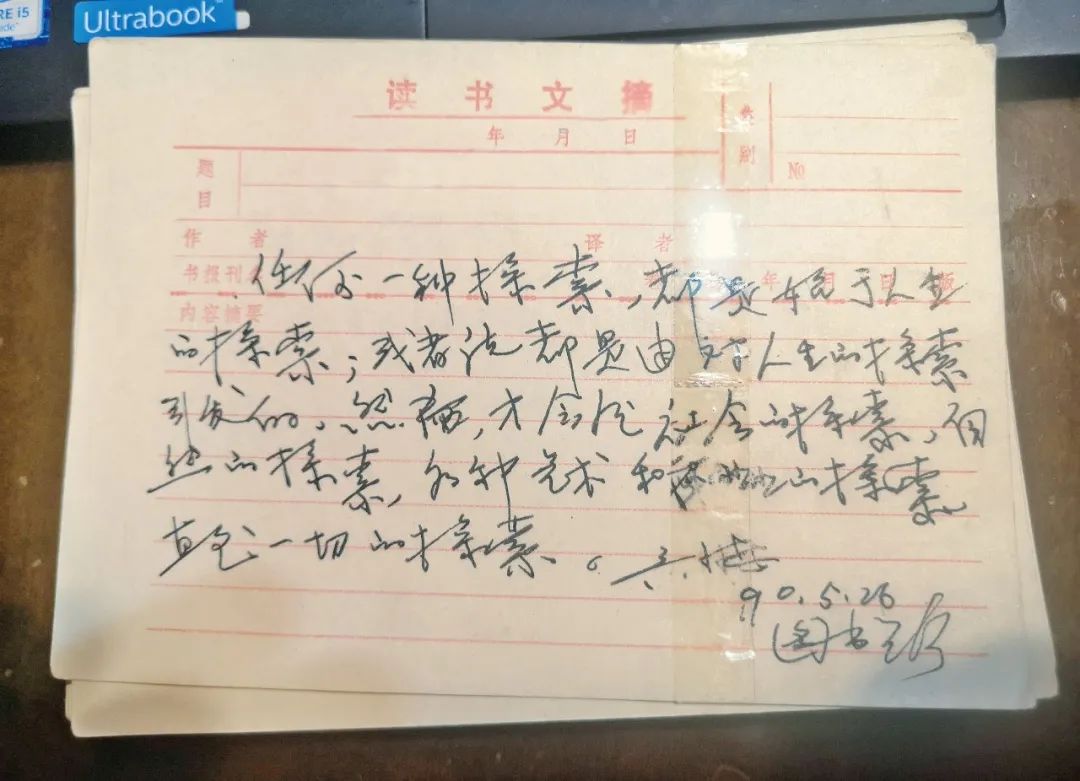 RE i5
Ultrabook
读书文摘
年 月 日
类别
No
题目
作者 译者
书报刊名 年 月 日 版
内容摘要
任何一种探索,都是始于人生
的探索;或者说都是由对人生的探索
引发的,然后,才会从社会的探索,自
然的探索,各种艺术和的探索,
直至一切的探索。
90.5.26
图书馆